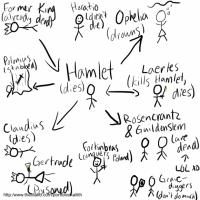 Former King
(already dead)
Horatio
(doesn't
die)
Ophelia
(drowns)
Polonius
(stabbed)
Hamlet
(dies)
Laertes
(kills Hamlet,
dies)
Claudius
(dies)
Rosencrantz
& Guildenstern
(are
dead)
LOL XD
Gertrude
(Poisoned)
Fortinbras
(conquers
Poland)
Grave-
diggers
(don't